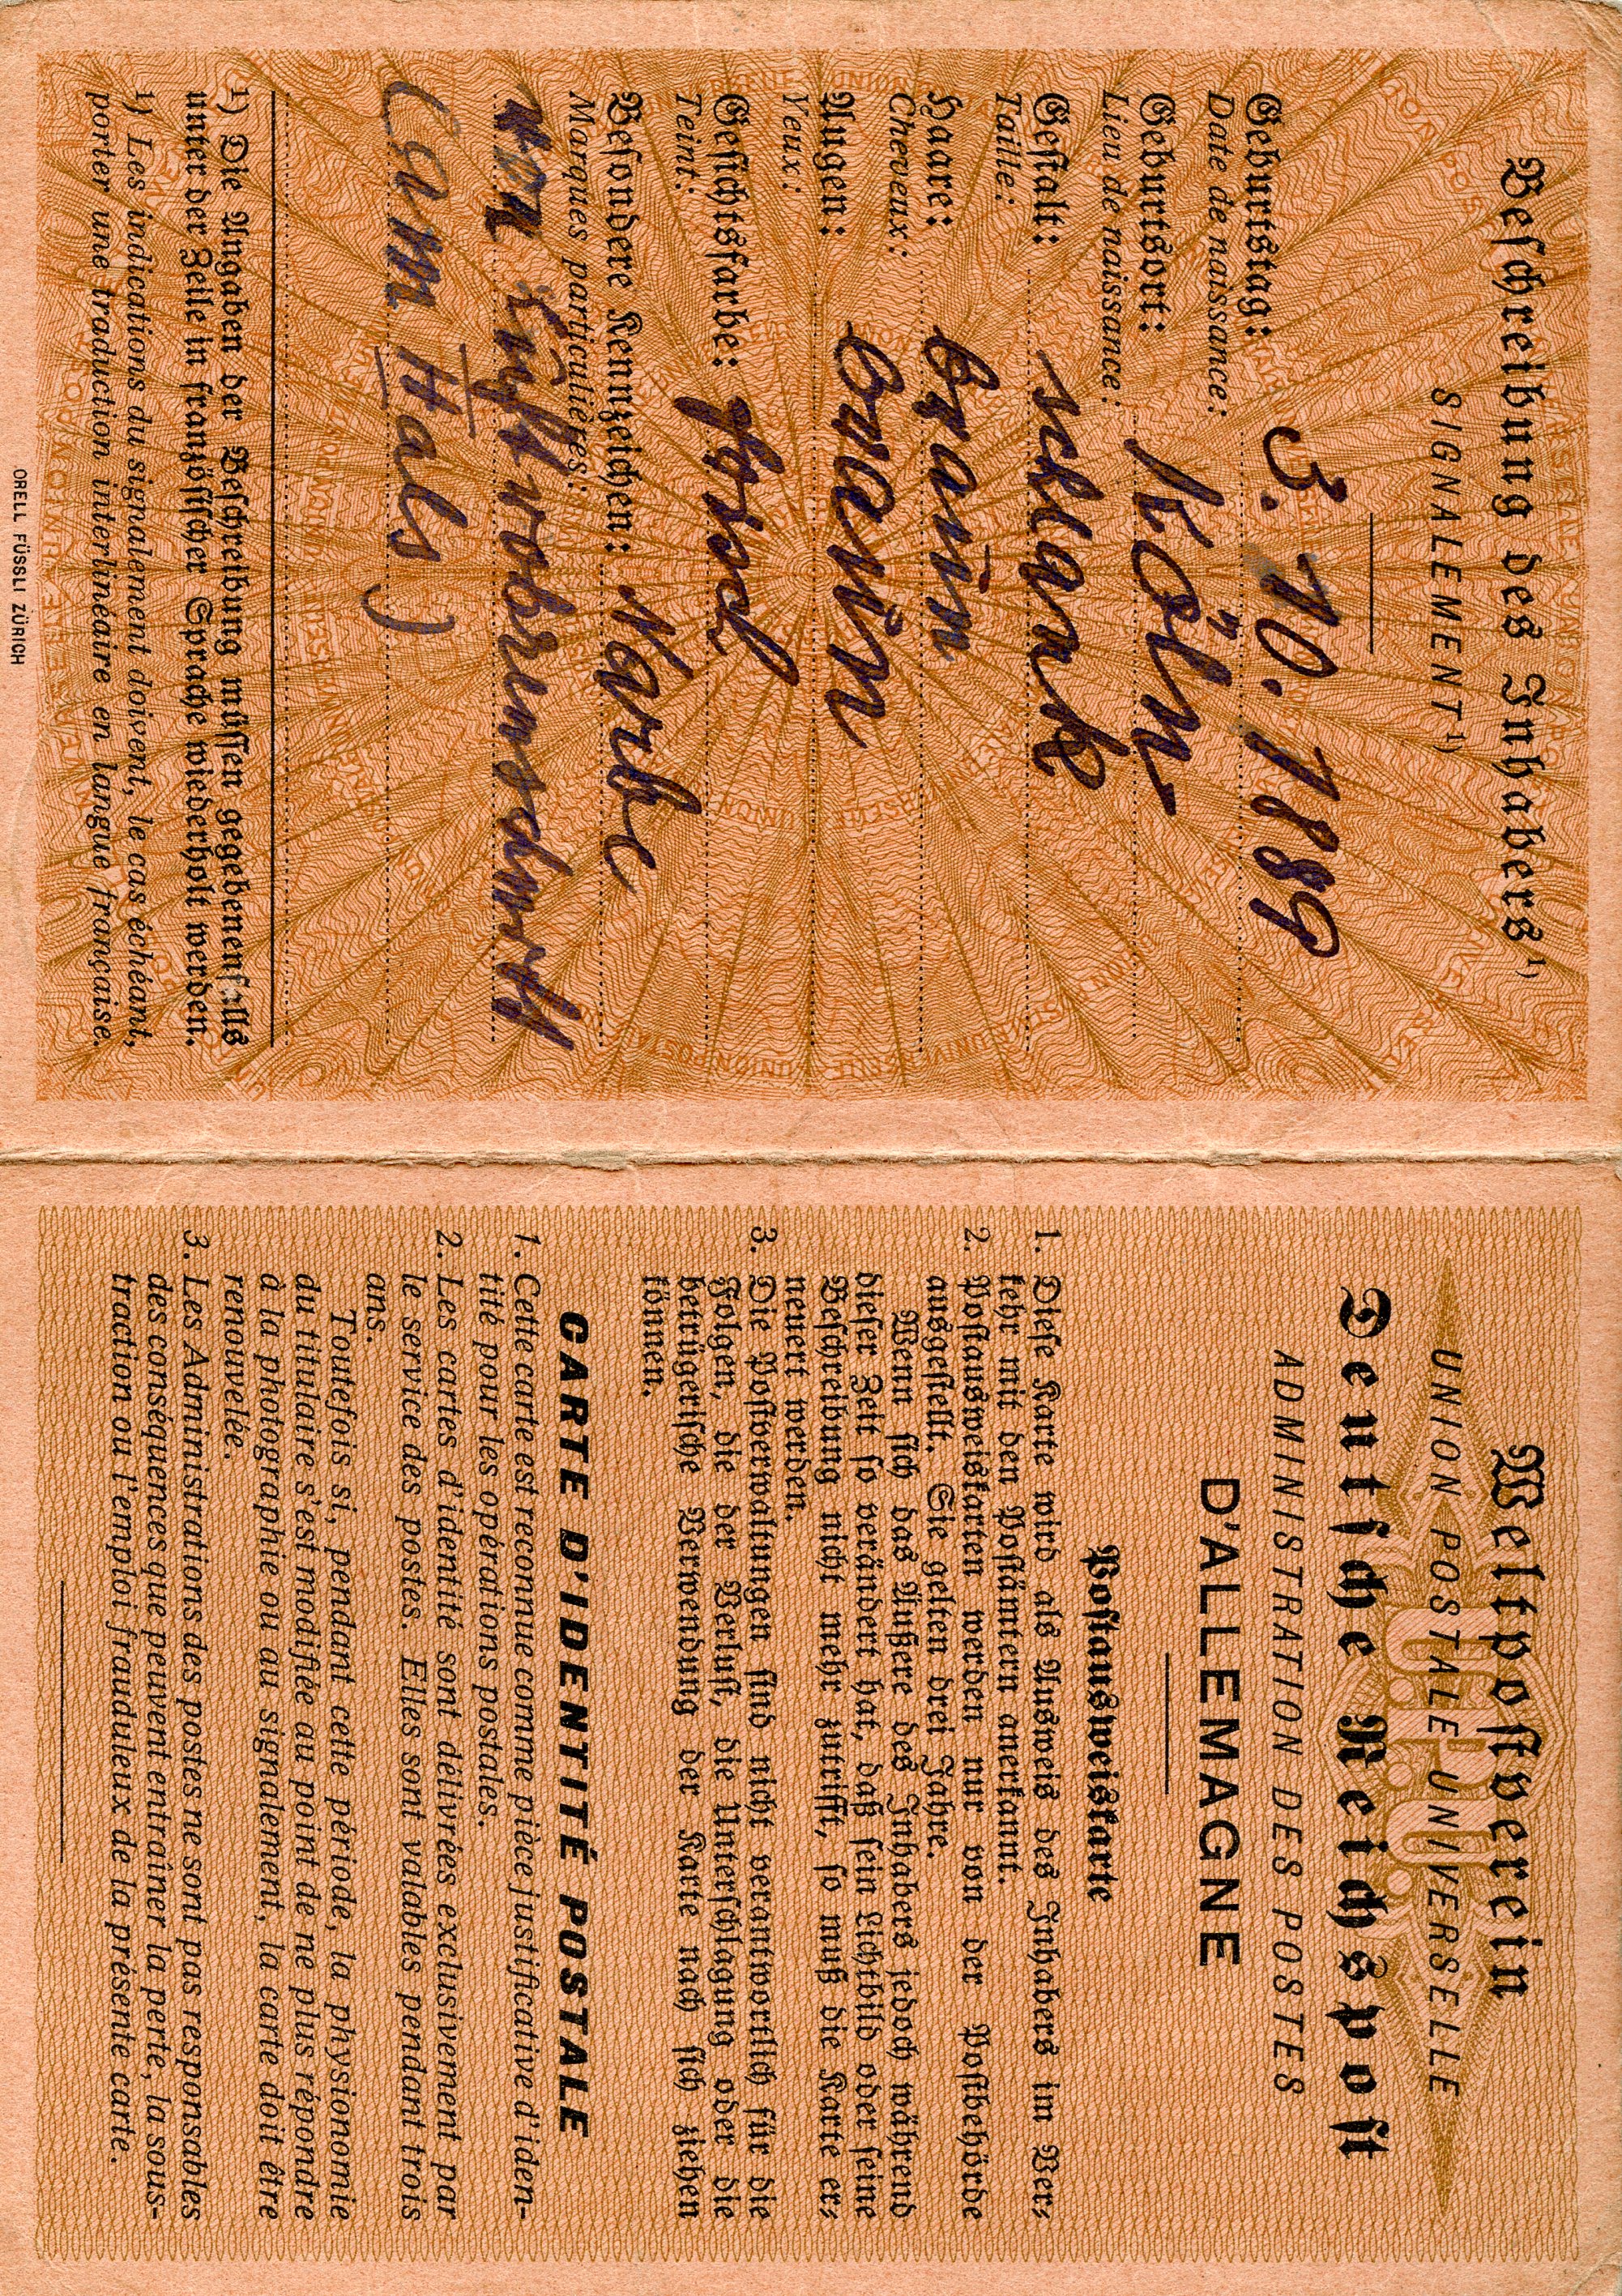 Beschreibung des Inhabers ¹)
SIGNALEMENT ¹)
Geburtstag: 5. 10. 1889
Date de naissance:
Geburtsort: Köln
Lieu de naissance:
Gestalt: schlank
Taille:
Haare: braun
Cheveux:
Augen: braun
Yeux:
Gesichtsfarbe:
Teint:
Besondere Kennzeichen: Narbe
Marques particulières:
von Luftröhrenschnitt
(am Hals)
¹) Die Angaben der Beschreibung müssen gegebenenfalls
unter der Zeile in französischer Sprache wiederholt werden.
¹) Les indications du signalement doivent, le cas échéant,
porter une traduction interlinéaire en langue française.
ORELL FÜSSLI ZÜRICH
Weltpostverein
UNION POSTALE UNIVERSELLE
U.P.U.
Deutsche Reichspost
ADMINISTRATION DES POSTES
D'ALLEMAGNE
Postausweiskarte
1. Diese Karte wird als Ausweis des Inhabers im Ver-
kehr mit den Postämtern anerkannt.
2. Postausweiskarten werden nur von der Postbehörde
ausgestellt. Sie gelten drei Jahre.
Wenn sich das Äußere des Inhabers jedoch während
dieser Zeit so verändert hat, daß sein Lichtbild oder seine
Beschreibung nicht mehr zutrifft, so muß die Karte er-
neuert werden.
3. Die Postverwaltungen sind nicht verantwortlich für die
Folgen, die der Verlust, die Unterschlagung oder die
betrügerische Verwendung der Karte nach sich ziehen
können.
CARTE D'IDENTITÉ POSTALE
1. Cette carte est reconnue comme pièce justificative d'iden-
tité pour les opérations postales.
2. Les cartes d'identité sont délivrées exclusivement par
le service des postes. Elles sont valables pendant trois
ans.
Toutefois si, pendant cette période, la physionomie
du titulaire s'est modifiée au point de ne plus répondre
à la photographie ou au signalement, la carte doit être
renouvelée.
3. Les Administrations des postes ne sont pas responsables
des conséquences que peuvent entraîner la perte, la sous-
traction ou l'emploi frauduleux de la présente carte.